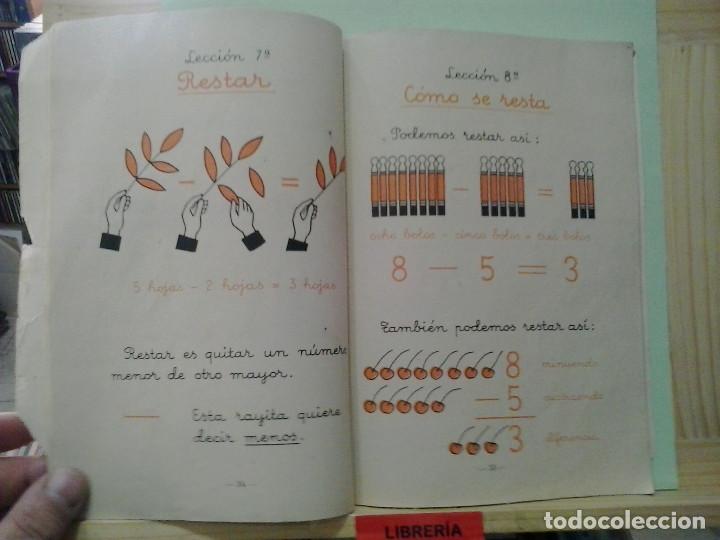 Lección 7ª
Restar
- =
5 hojas - 2 hojas = 3 hojas
Restar es quitar un número
menor de otro mayor.
— Esta rayita quiere
decir menos.
Lección 8ª
Cómo se resta
Podemos restar así:
- =
ocho bolos - cinco bolos = tres bolos
8 - 5 = 3
También podemos restar así:
8 minuendo
- 5 sustraendo
3 diferencia
LIBRERÍA
todocoleccion.net